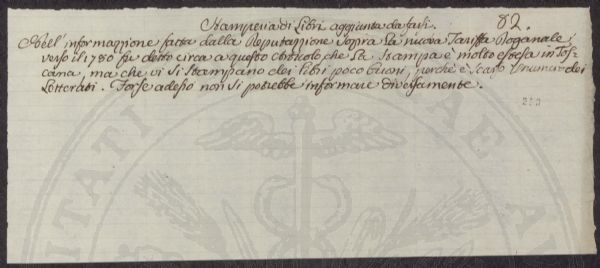 Stamperia di Libri aggiunta da farsi. 82.
Nell' informazione fatta dalla Deputazione sopra la nuova Tariffa Doganale,
verso il 1780 fu detto circa a questo articolo che la Stampa è molto estesa in Tos-
cana, ma che vi si stampano dei libri poco buoni, perchè è scarso il numero dei
Letterati. Forse adesso non si potrebbe informare diversamente.